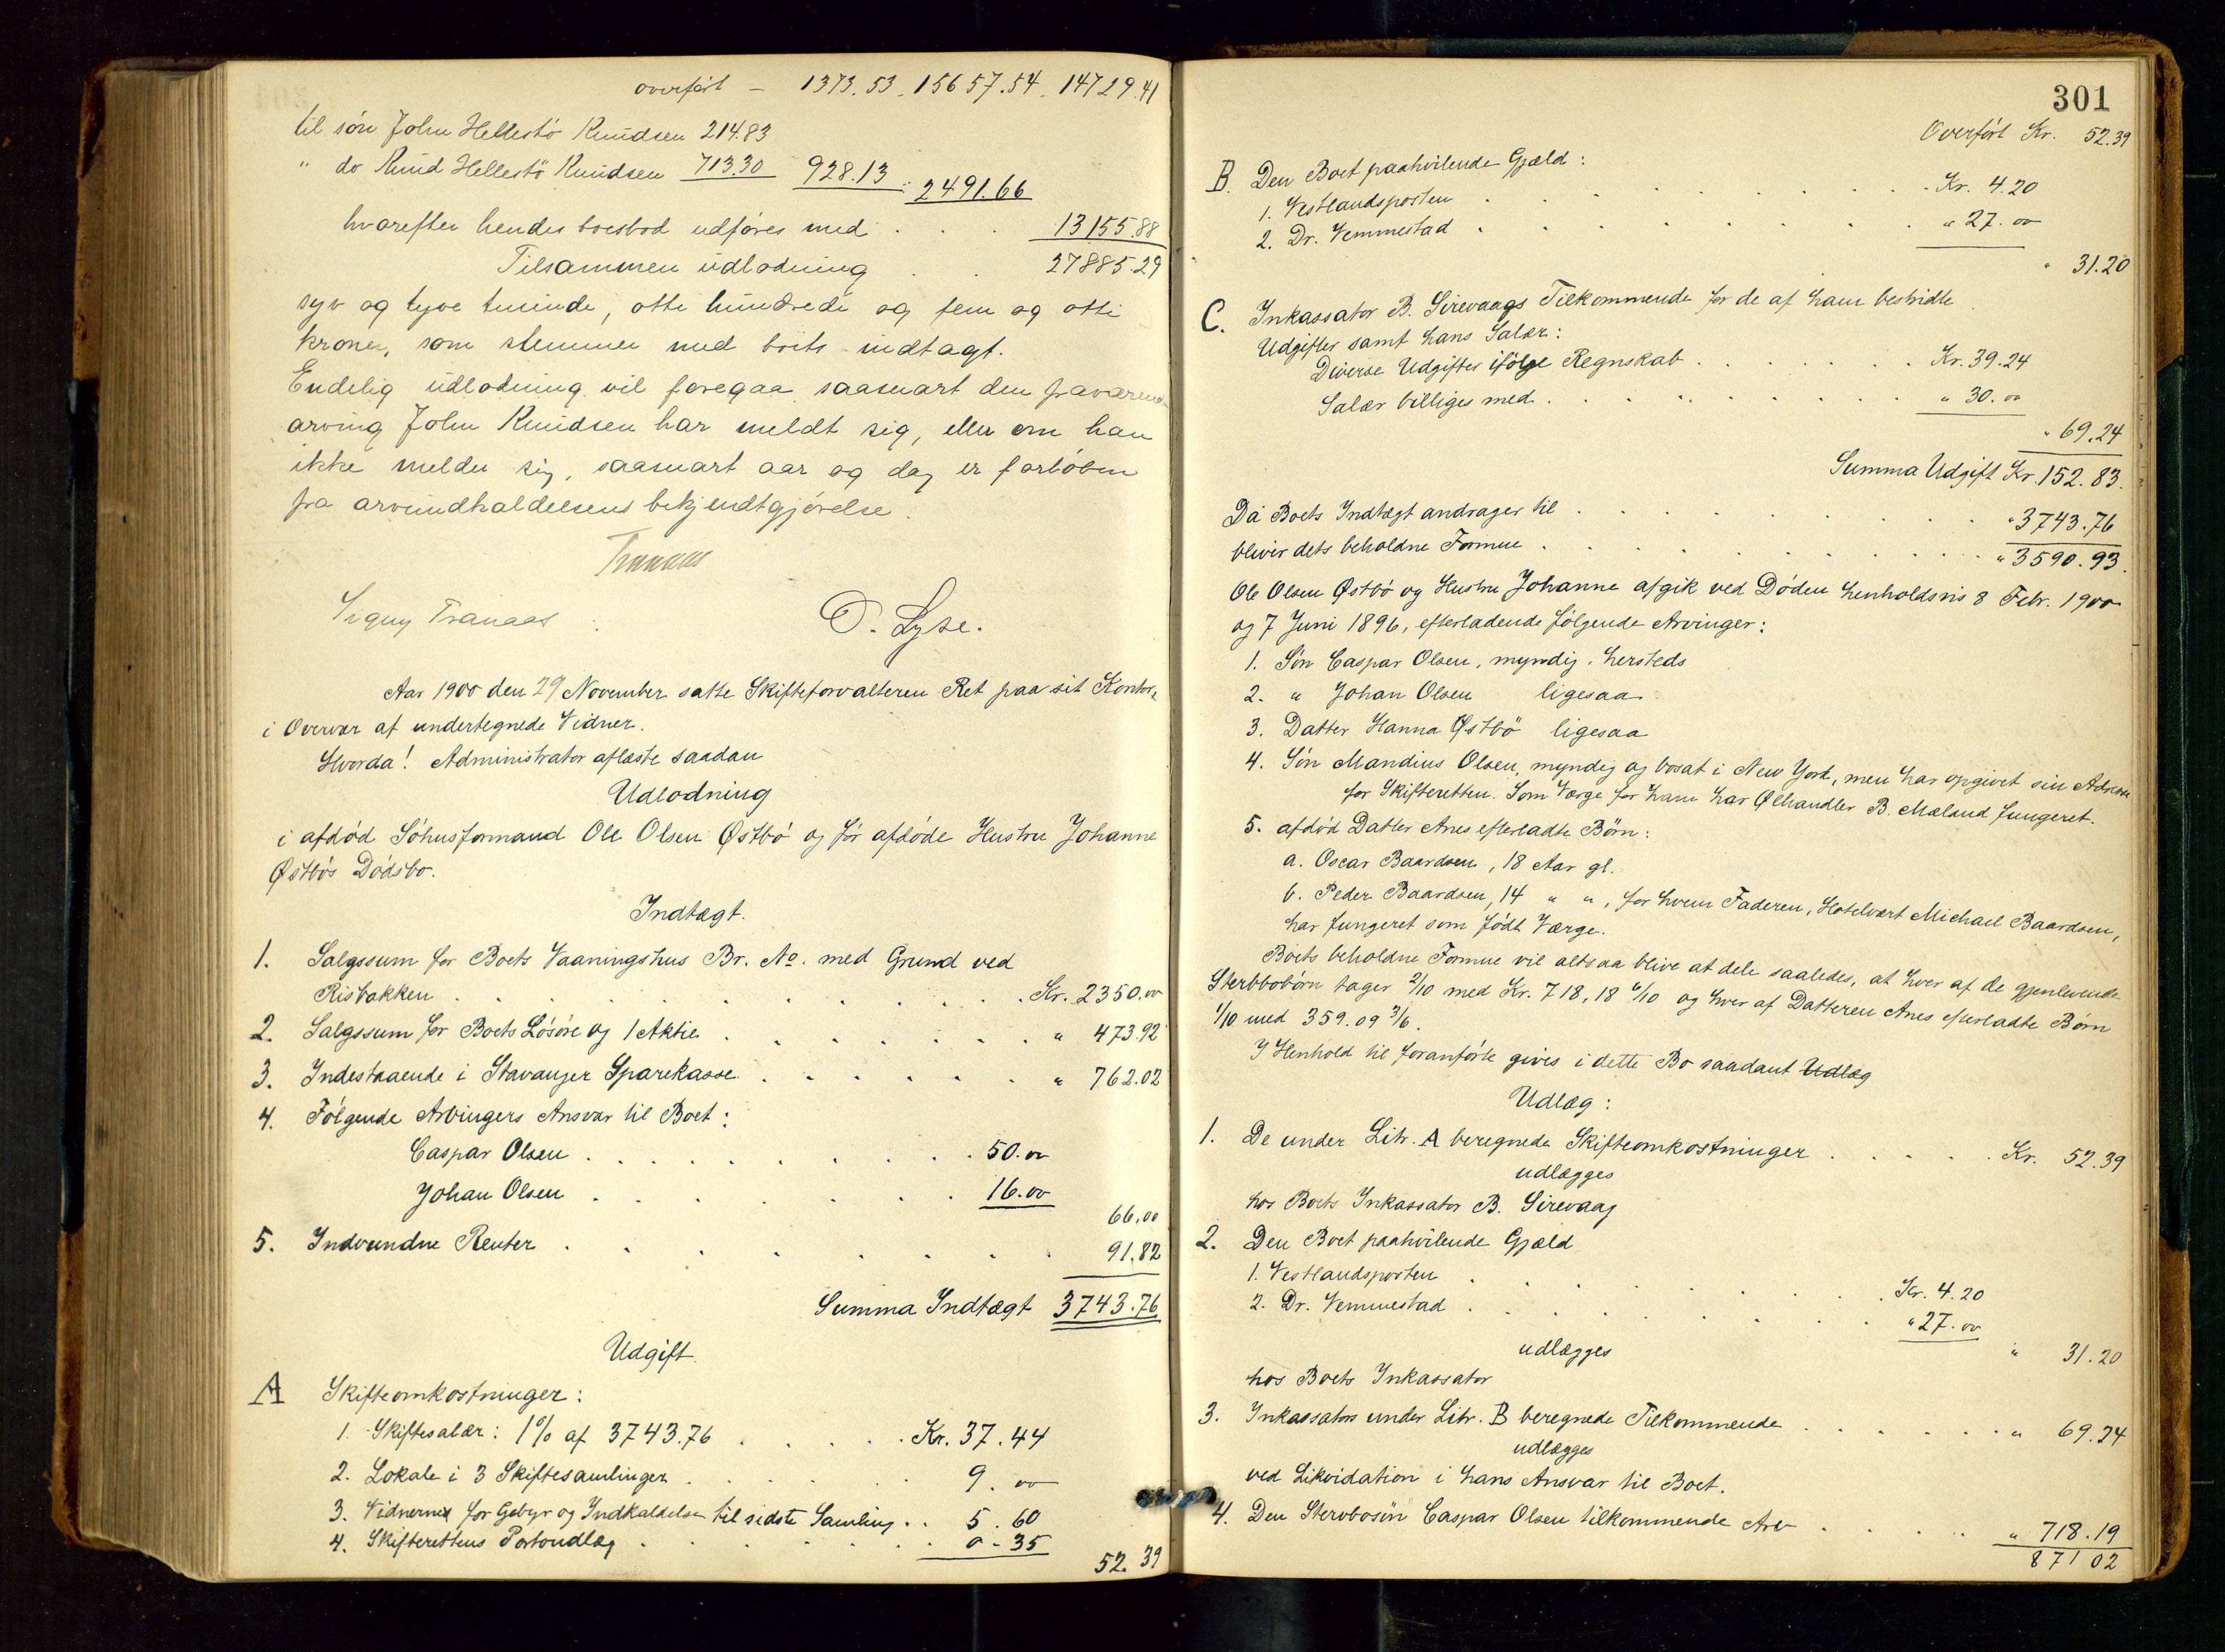 overført – 1373.53. 15657.54. 14729.41
til søn John Hellestö Knudsen 214.83
" do Knud Hellestö Knudsen 713.30 928.13 : 2491.66
hvorefter hendes boesbod udføres med . . . 13155.88
Tilsammen udlodning . . 27885.29
syv og tyve tusinde, otte hundrede og fem og otti
kroner, som stemmer med boets indtægt.
Endelig udlodning vil foregaa saasnart den fraværende
arving John Knudsen har meldt sig, eller om han
ikke melder sig, saasnart aar og dag er forløben
fra arveindkaldelsens bekjendtgjørelse.
Tranaas
Signy Tranaas O. Lyse.
Aar 1900 den 29 November satte Skifteforvalteren Ret paa sit Kontor,
i Overvær af undertegnede Vidner.
Hvorda! Administrator aflæste saadan
Udlodning
i afdød Söhusformand Ole Olsen Østbö og før afdøde Hustru Johanne
Østbös Dödsbo.
Indtægt.
1. Salgssum for Boets Vaaningshus Br. No. med Grund ved
Risbakken . . . . Kr. 2350.00
2. Salgssum for Boets Løsøre og 1 Aktie . . . . " 473.92
3. Indestaaende i Stavanger Sparekasse . . . . " 762.02
4. Følgende Arvingers Ansvar til Boet:
Caspar Olsen . . . . 50.00
Johan Olsen . . . . 16.00
66.00
5. Indvundne Renter . . . . 91.82
Summa Indtægt 3743.76
Udgift.
A Skifteomkostninger:
1. Skiftesalær: 1% af 3743.76 . . . . Kr. 37.44
2. Lokale i 3 Skiftesamlinger . . . . 9.00
3. Vidnerne for Gebyr og Indkaldelse til sidste Samling . . 5.60
4. Skifterettens Portoudlæg . . . . 0.35
52.39
301
Overført Kr. 52.39
B. Den Boet paahvilende Gjæld:
1. Vestlandsposten . . . . Kr. 4.20
2. Dr. Vemmestad . . . . " 27.00
" 31.20
C. Inkassator B. Sirevaags Tilkommende for de af ham bestridte
Udgifter samt hans Salær:
Diverse Udgifter ifølge Regnskab . . . . Kr. 39.24
Salær billiges med . . . . " 30.00
" 69.24
Summa Udgift Kr. 152.83.
Da Boets Indtægt andrager til . . . . " 3743.76
bliver dets beholdne Formue . . . . " 3590.93.
Ole Olsen Østbö og Hustru Johanne afgik ved Døden henholdsvis 8 Febr. 1900
og 7 Juni 1896, efterladende følgende Arvinger:
1. Søn Caspar Olsen, myndig, hersteds
2. " Johan Olsen ligesaa
3. Datter Hanna Østbö ligesaa
4. Søn Mandius Olsen, myndig og bosat i New York, men har opgivet sin Adresse
for Skifteretten. Som Værge for ham har Ølhandler B. Mæland fungeret.
5. afdød Datter Anes efterladte Børn:
a. Oscar Baardsen, 18 Aar gl.
b. Peder Baardsen, 14 " ", for hvem Faderen, Hotelvært Michael Baardsen,
har fungeret som født Værge.
Boets beholdne Formue vil altsaa blive at dele saaledes, at hver af de gjenlevende
Stervbobörn tager 2/10 med Kr. 718,18 6/10 og hver af Datteren Anes efterladte Børn
1/10 med 359.09 3/6.
I Henhold til foranførte gives i dette Bo saadant Udlæg
Udlæg:
1. De under Litr. A beregnede Skifteomkostninger . . . . Kr. 52.39
udlægges
hos Boets Inkassator B. Sirevaag
2. Den Boet paahvilende Gjæld
1. Vestlandsposten . . . . Kr. 4.20
2. Dr. Vemmestad . . . . " 27.00
udlægges " 31.20
hos Boets Inkassator
3. Inkassators under Litr. B beregnede Tilkommende . . . . " 69.24
udlægges
ved Likvidation i hans Ansvar til Boet.
4. Den Stervbosøn Caspar Olsen tilkommende Arv . . . . " 718.19
871 02